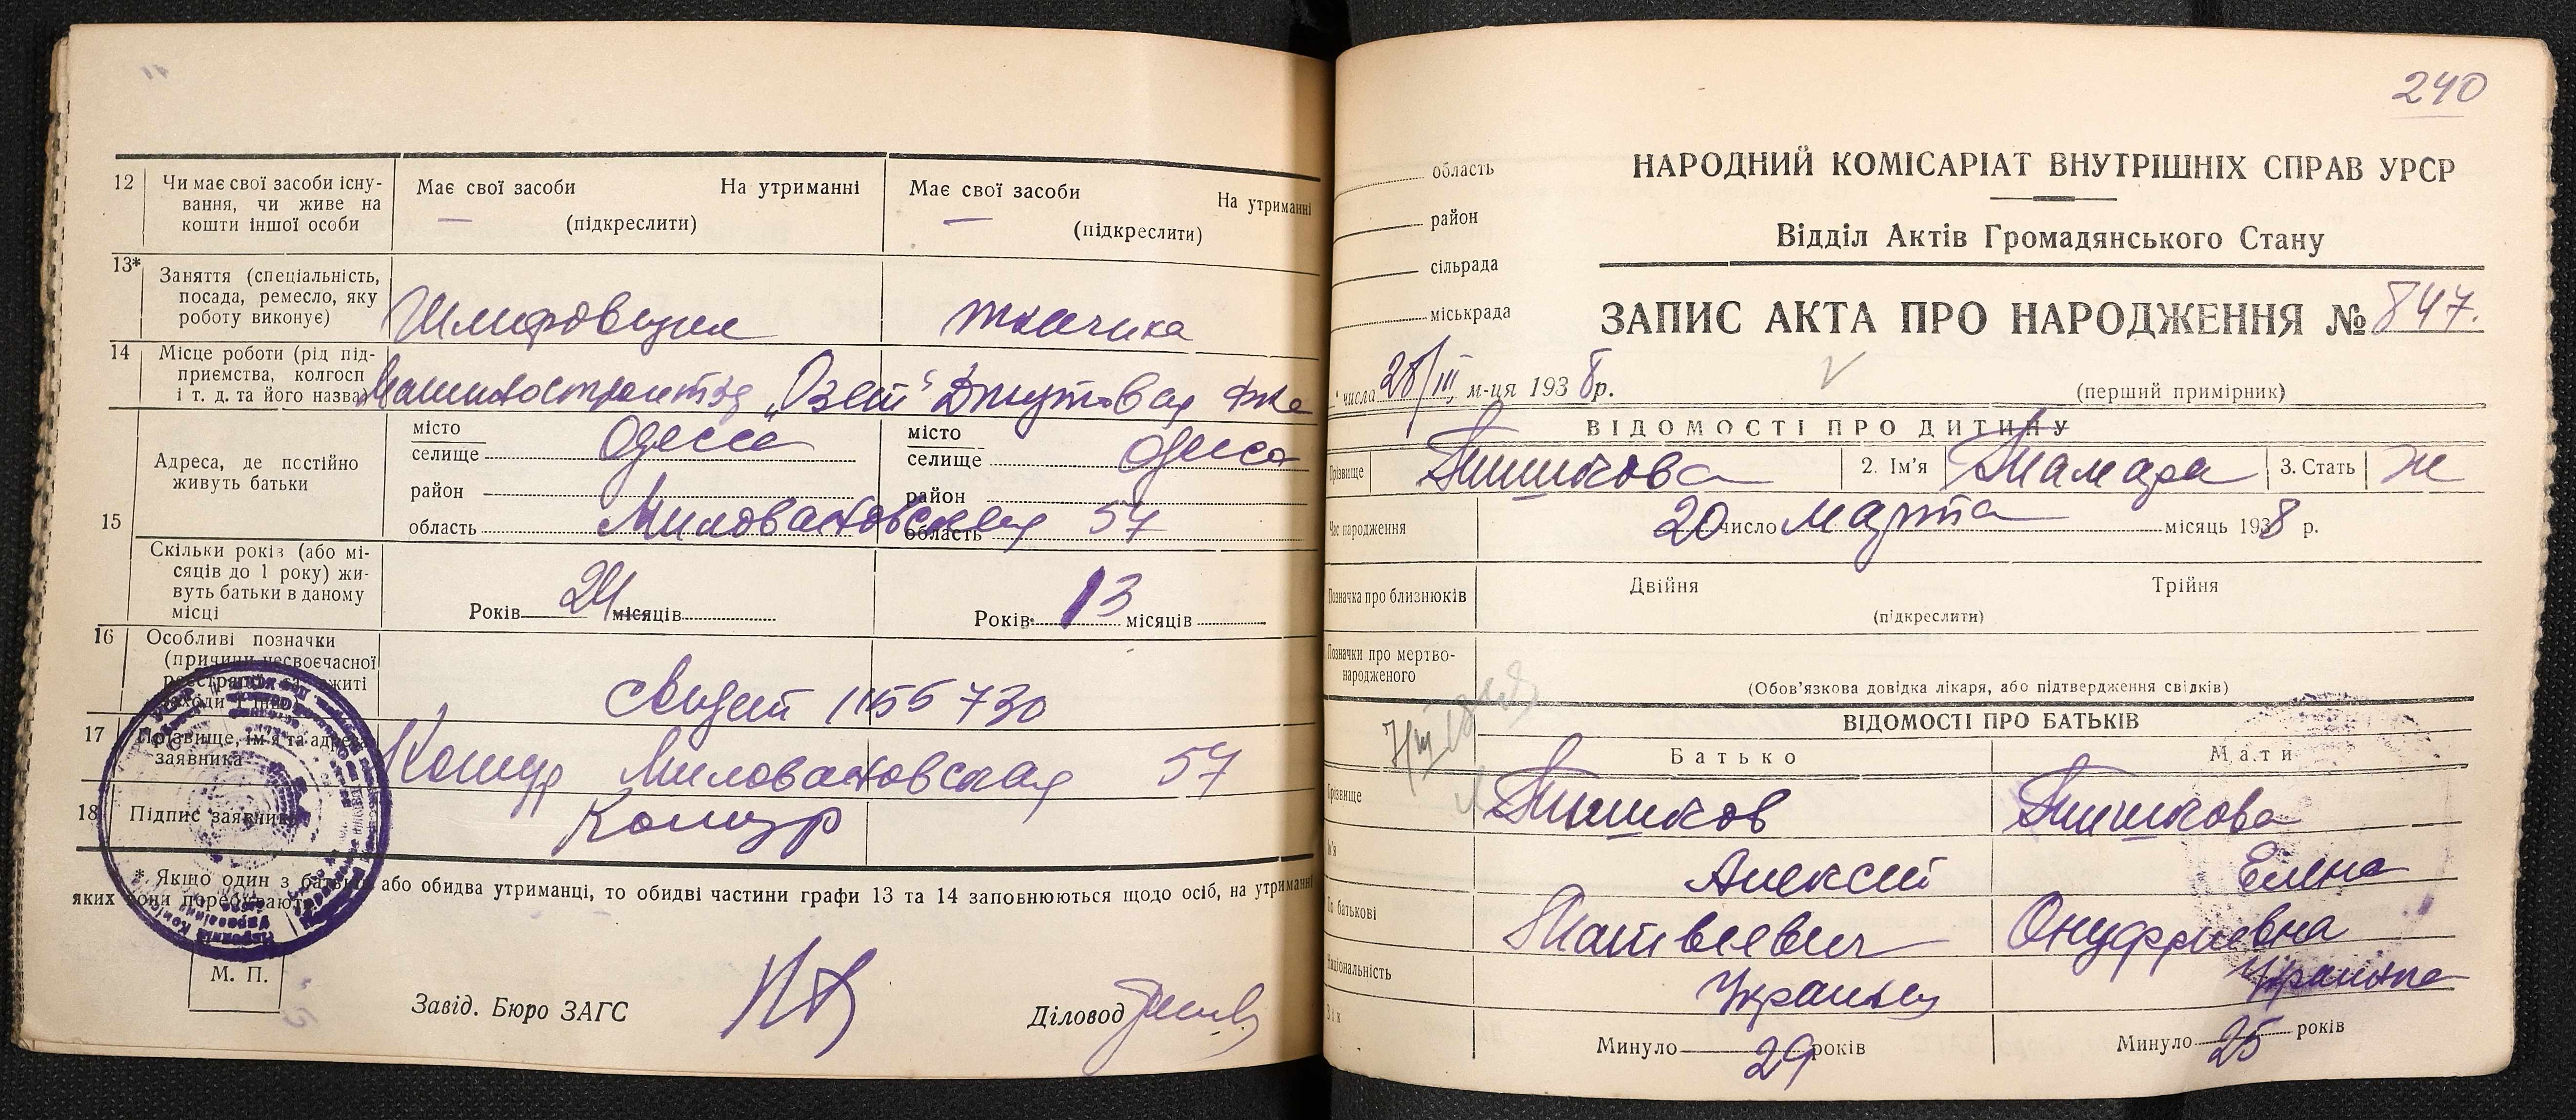 12
Чи має свої засоби існу-
вання, чи живе на
кошти іншої особи
Має свої засоби На утриманні
(підкреслити)
Має свої засоби На утриманні
(підкреслити)
13*
Заняття (спеціальність,
посада, ремесло, яку
роботу виконує)
Шлифовщик
ткачиха
14
Місце роботи (рід під-
приємства, колгосп
і т. д. та його назва)
Джутовая ф-ка
15
Адреса, де постійно
живуть батьки
місто
селище Одесса
район
область
місто
селище Одесса
район
область
Миловановская 57
Скільки років (або мі-
сяців до 1 року) жи-
вуть батьки в даному
місці
Років 24 місяців
Років 13 місяців
16
Особливі позначки
(причини несвоєчасної
730
17
Прізвище, ім'я та адреса
заявника
Кошур Миловановская 57
18
Підпис заявника
Кошур
* Якщо один з батьків або обидва утриманці, то обидві частини графи 13 та 14 заповнюються щодо осіб, на утриманні
яких вони перебувають
М. П.
Завід. Бюро ЗАГС
Діловод
240
область
район
сільрада
міськрада
НАРОДНИЙ КОМІСАРІАТ ВНУТРІШНІХ СПРАВ УРСР
Відділ Актів Громадянського Стану
ЗАПИС АКТА ПРО НАРОДЖЕННЯ № 847.
числа 28/III м-ця 1938 р.
(перший примірник)
ВІДОМОСТІ ПРО ДИТИНУ
Прізвище Тишкова 2. Ім'я Тамара 3. Стать ж
Час народження 20 число марта місяць 1938 р.
Позначка про близнюків
Двійня Трійня
(підкреслити)
Позначки про мертво-
народженого
(Обов'язкова довідка лікаря, або підтвердження свідків)
ВІДОМОСТІ ПРО БАТЬКІВ
Батько Мати
Прізвище Тишков Тишкова
Ім'я Алексей Елена
По батькові Матвеевич Онуфриевна
Національність Украинец Украинка
Вік Минуло 29 років Минуло 25 років